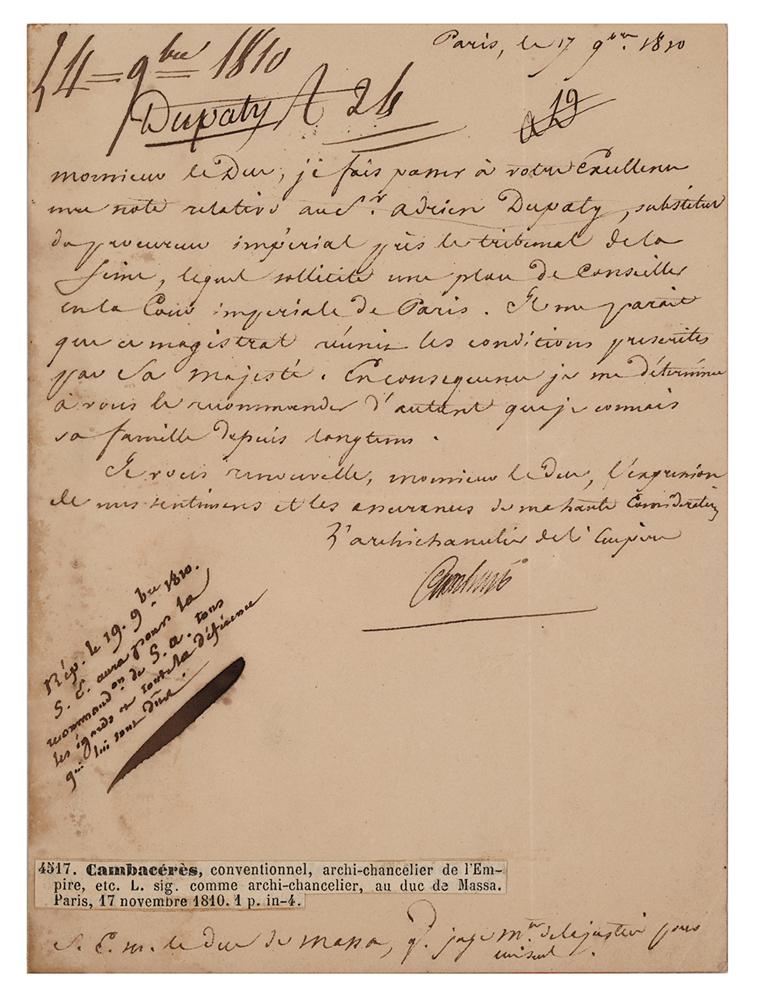 24 = 9bre 1810
Dupaty A 26
Paris, le 17 9bre. 1810
a 12
monsieur le Duc, je fais passer à votre Excellence
une note relative au Sr. adrien Dupaty, substitut
du procureur impérial près le tribunal de la
Seine, lequel sollicite une place de Conseiller
en la Cour impériale de Paris. Il me parait
que ce magistrat réunit les conditions prescrites
par Sa Majesté. En conséquence je me détermine
à vous le recommander d'autant que je connais
sa famille depuis longtems.
Je vous renouvelle, monsieur le Duc, l'expression
de mes sentimens et les assurances de ma haute Considération
L'archichancelier de l'Empire
Cambacérès
Rép. le 19. 9bre 1810.
S. E. aura pour la
recommandon. de S. a. tous
les égards et toute la déférence
qui lui sont dus.
4517. Cambacérès, conventionnel, archi-chancelier de l'Em-
pire, etc. L. sig. comme archi-chancelier, au duc de Massa.
Paris, 17 novembre 1810. 1 p. in-4.
S. E. m. le Duc de massa, gd. juge mtre de la justice